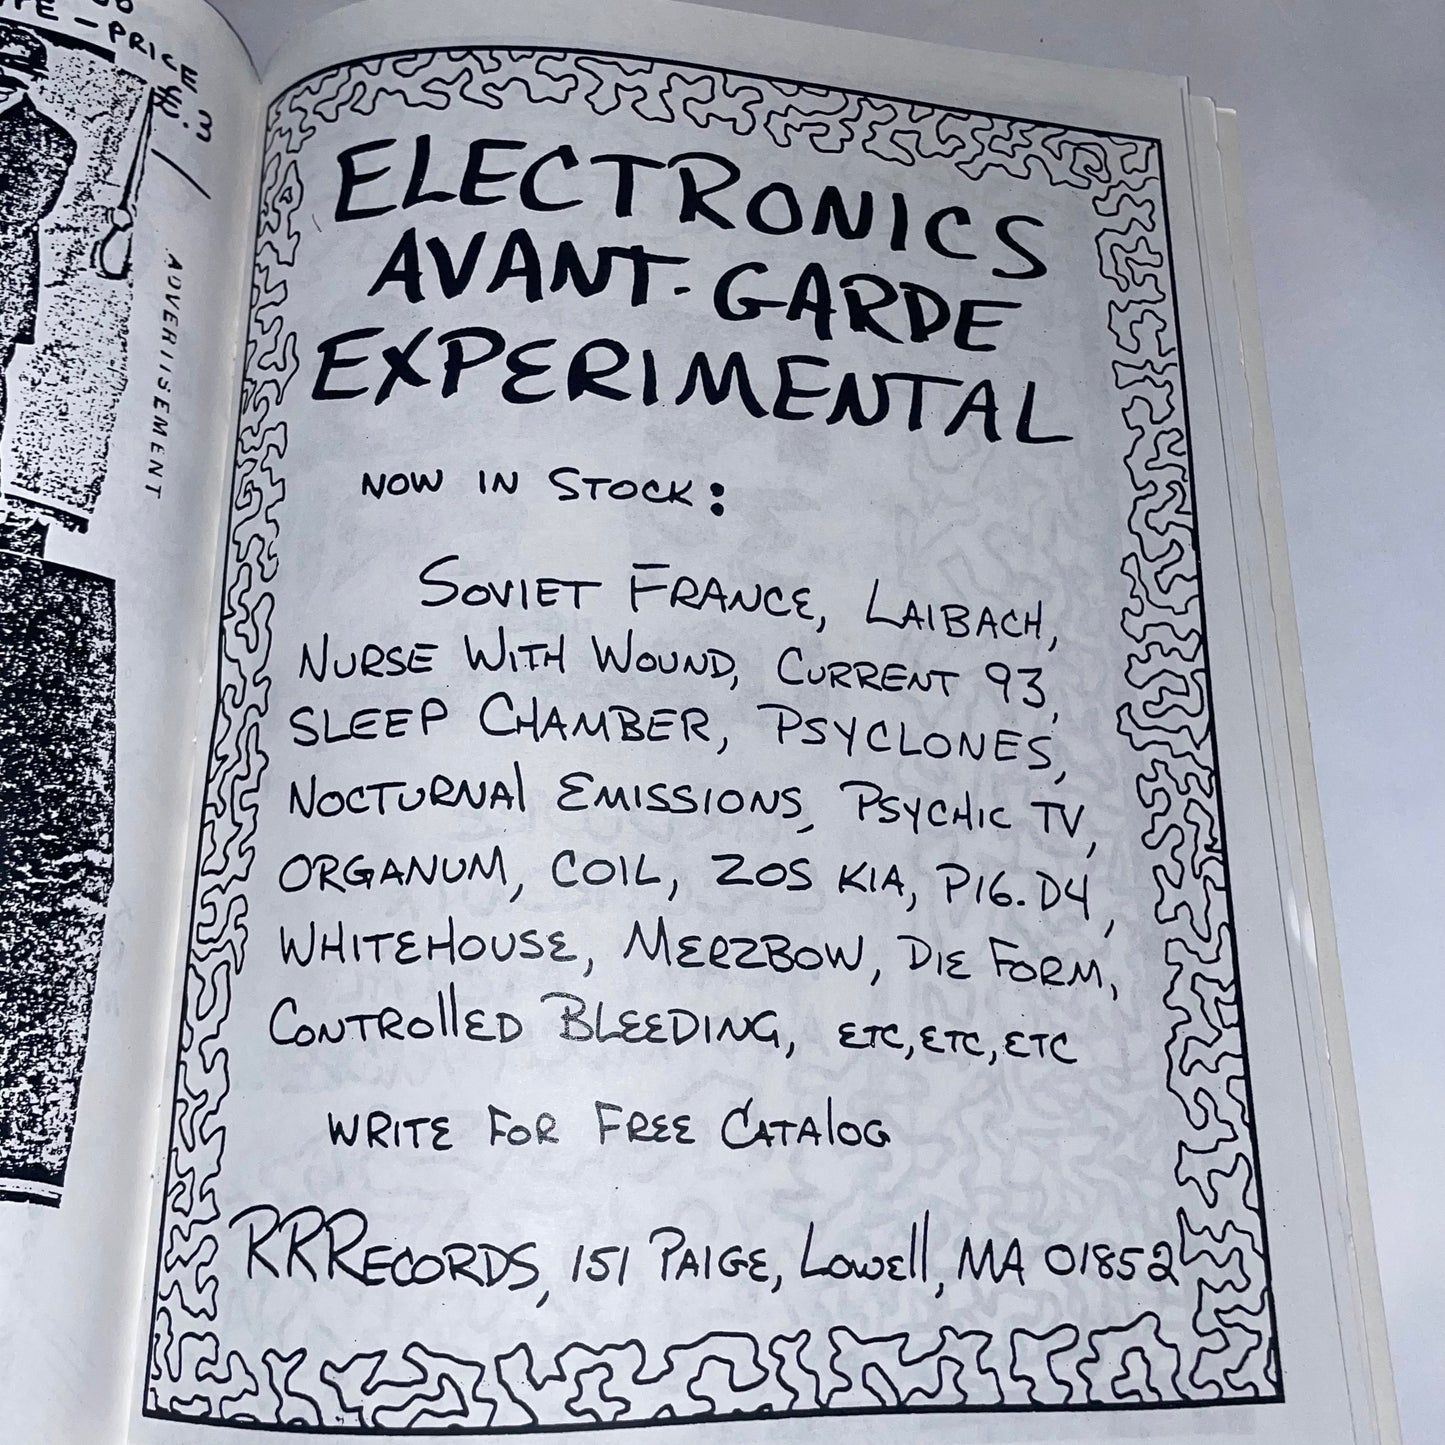 PRICE
£.3
ADVERTISEMENT
ELECTRONICS
AVANT-GARDE
EXPERIMENTAL
NOW IN STOCK:
SOVIET FRANCE, LAIBACH,
NURSE WITH WOUND, CURRENT 93,
SLEEP CHAMBER, PSYCLONES,
NOCTURNAL EMISSIONS, PSYCHIC TV,
ORGANUM, COIL, ZOS KIA, P16.D4,
WHITEHOUSE, MERZBOW, DIE FORM,
CONTROLLED BLEEDING, ETC, ETC, ETC
WRITE FOR FREE CATALOG
RRRECORDS, 151 PAIGE, LOWELL, MA 01852